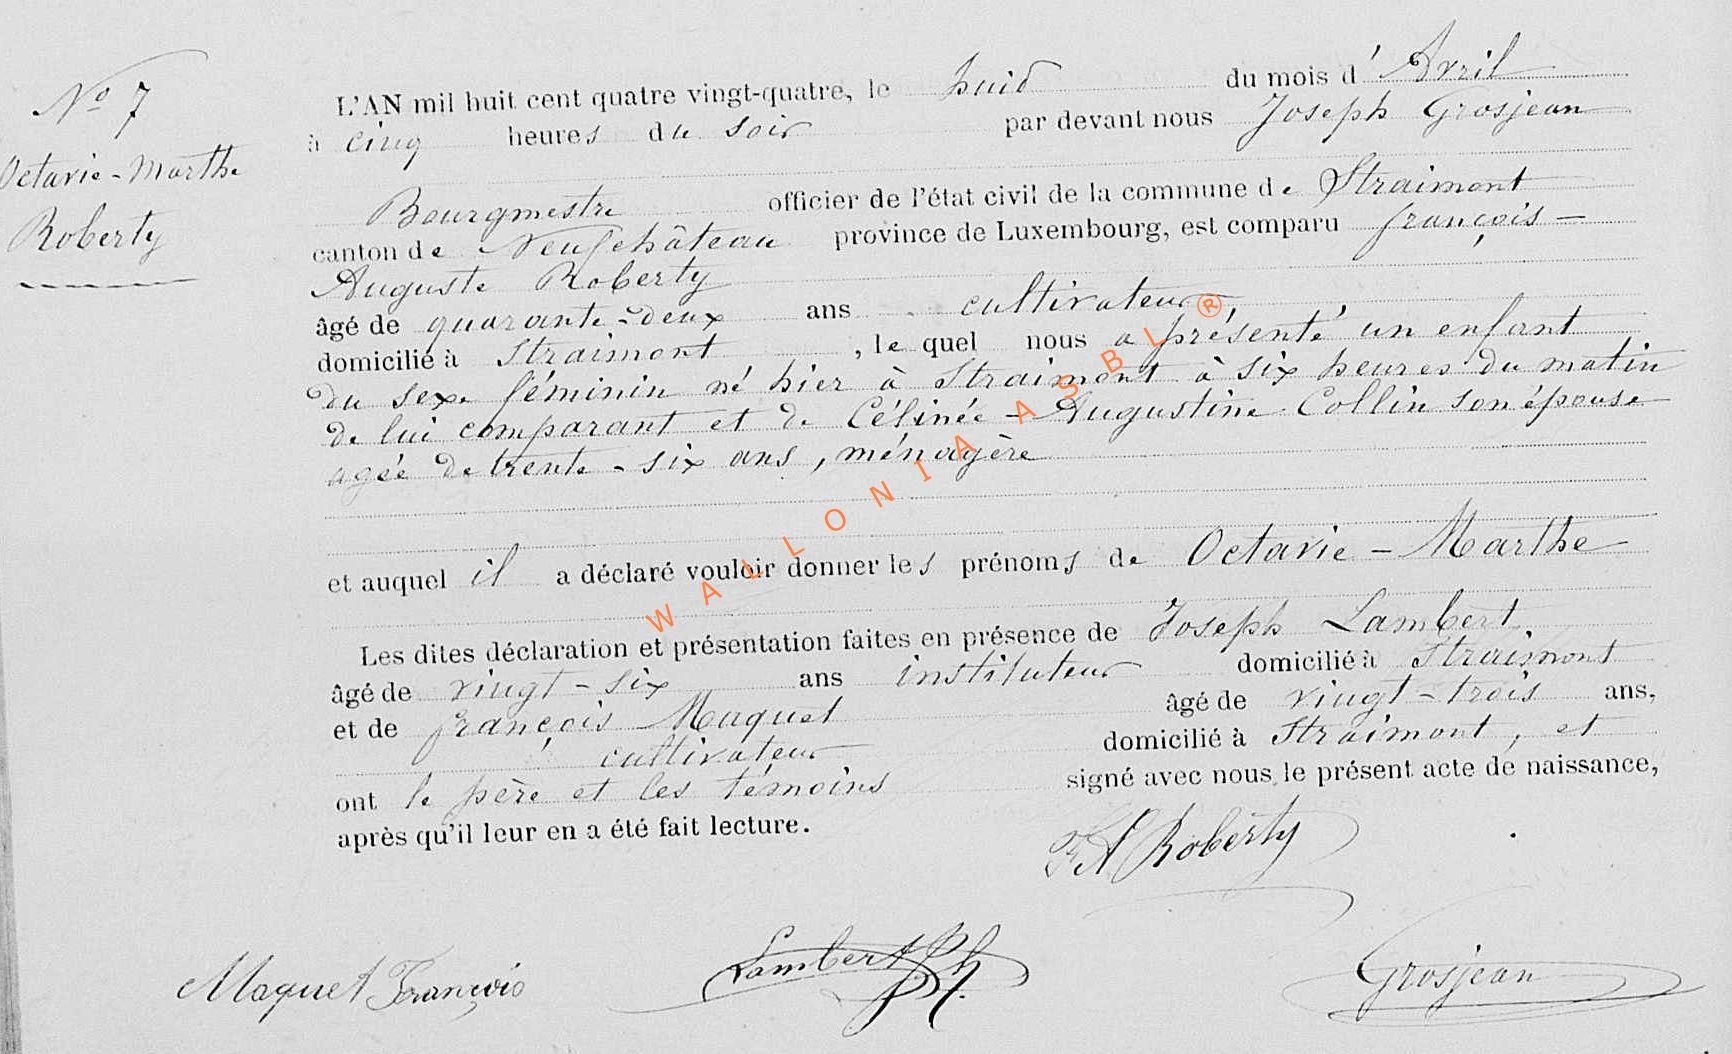 N° 7
Octavie-Marthe
Roberty
L'AN mil huit cent quatre vingt-quatre, le huit du mois d'Avril
à cinq heures du soir par devant nous Joseph Grosjean
Bourgmestre officier de l'état civil de la commune de Straimont
canton de Neufchâteau province de Luxembourg, est comparu françois-
Auguste Roberty
âgé de quarante-deux ans cultivateur,
domicilié à Straimont, le quel nous a présenté un enfant
du sexe féminin né hier à Straimont à six heures du matin
de lui comparant et de Célinée-Augustine Collin son épouse
agée de trente-six ans, ménagère
et auquel il a déclaré vouloir donner les prénoms de Octavie-Marthe
Les dites déclaration et présentation faites en présence de Joseph Lambert
âgé de vingt-six ans instituteur domicilié à Straimont
et de françois Maquet âgé de vingt-trois ans,
cultivateur domicilié à Straimont, et
ont le père et les témoins signé avec nous le présent acte de naissance,
après qu'il leur en a été fait lecture.
FA Roberty
Maquet François
Lambert Jh.
Grosjean
WALLONIA ASBL ®